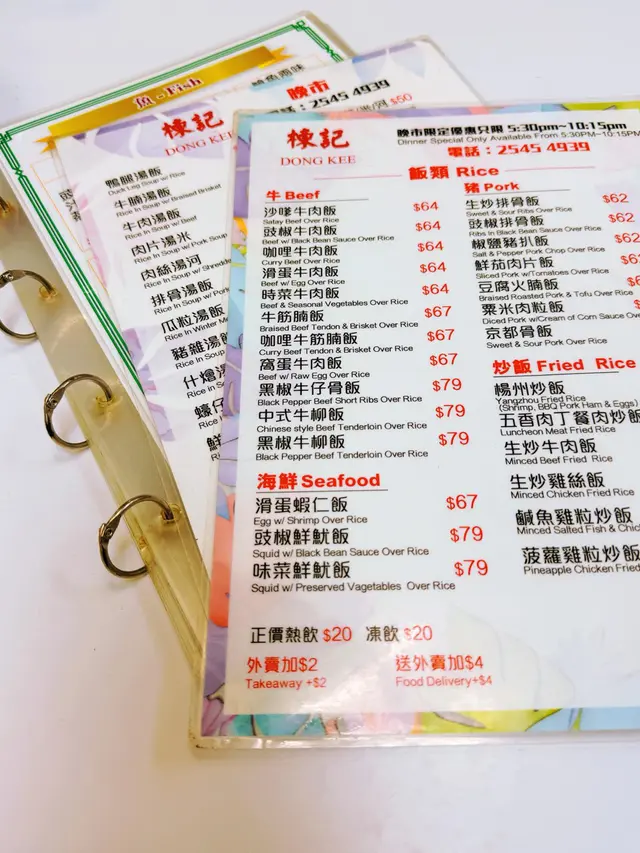 魚 - Fish
晚市
電話：2545 4939
$50
棟記
DONG KEE
鴨腿湯飯
Duck Leg Soup w/ Rice
牛腩湯飯
Rice In Soup w/ Braised Brisket
牛肉湯飯
Rice In Soup w/ Beef
肉片湯米
Rice In Soup w/ Pork Soup
肉絲湯河
Rice In Soup w/
排骨湯飯
Rice In Soup w/
瓜粒湯飯
Rice In Winter
豬雜湯飯
Rice In Soup
什燴湯
Rice In S
蠔仔
Rice
棟記
DONG KEE
晚市限定優惠只限 5:30pm~10:15pm
Dinner Special Only Available From 5:30PM~10:15PM
電話：2545 4939
飯類 Rice
牛 Beef
沙嗲牛肉飯 $64
Satay Beef Over Rice
豉椒牛肉飯 $64
Beef w/ Black Bean Sauce Over Rice
咖哩牛肉飯 $64
Curry Beef Over Rice
滑蛋牛肉飯 $64
Beef w/ Egg Over Rice
時菜牛肉飯 $64
Beef & Seasonal Vegetables Over Rice
牛筋腩飯 $67
Braised Beef Tendon & Brisket Over Rice
咖哩牛筋腩飯 $67
Curry Beef Tendon & Brisket Over Rice
窩蛋牛肉飯 $67
Beef w/ Raw Egg Over Rice
黑椒牛仔骨飯 $79
Black Pepper Beef Short Ribs Over Rice
中式牛柳飯 $79
Chinese style Beef Tenderloin Over Rice
黑椒牛柳飯 $79
Black Pepper Beef Tenderloin Over Rice
海鮮 Seafood
滑蛋蝦仁飯 $67
Egg w/ Shrimp Over Rice
豉椒鮮魷飯 $79
Squid w/ Black Bean Sauce Over Rice
味菜鮮魷飯 $79
Squid w/ Preserved Vagetables Over Rice
豬 Pork
生炒排骨飯 $62
Sweet & Sour Ribs Over Rice
豉椒排骨飯 $62
Ribs In Black Bean Sauce Over Rice
椒鹽豬扒飯 $62
Salt & Pepper Pork Chop Over Rice
鮮茄肉片飯
Sliced Pork w/Tomatoes Over Rice
豆腐火腩飯
Braised Roasted Pork & Tofu Over Rice
粟米肉粒飯
Diced Pork w/Cream of Corn Sauce
京都骨飯
Sweet & Sour Pork Over Rice
炒飯 Fried Rice
楊州炒飯
Yangzhou Fried Rice
(Shrimp, BBQ Pork Ham & Eggs)
五香肉丁餐肉炒飯
Luncheon Meat Fried Rice
生炒牛肉飯
Minced Beef Fried Rice
生炒雞絲飯
Minced Chicken Fried Rice
鹹魚雞粒炒飯
Minced Salted Fish &
菠蘿雞粒炒飯
Pineapple Chicken Fried
正價熱飲 $20 凍飲 $20
外賣加$2 送外賣加$4
Takeaway +$2 Food Delivery+$4